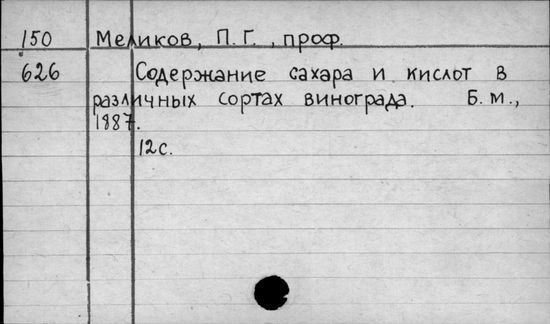 150 Меликов, П. Г., проф.
626 Содержание сахара и кислот в
различных сортах винограда. Б. м.,
1887.
12 с.